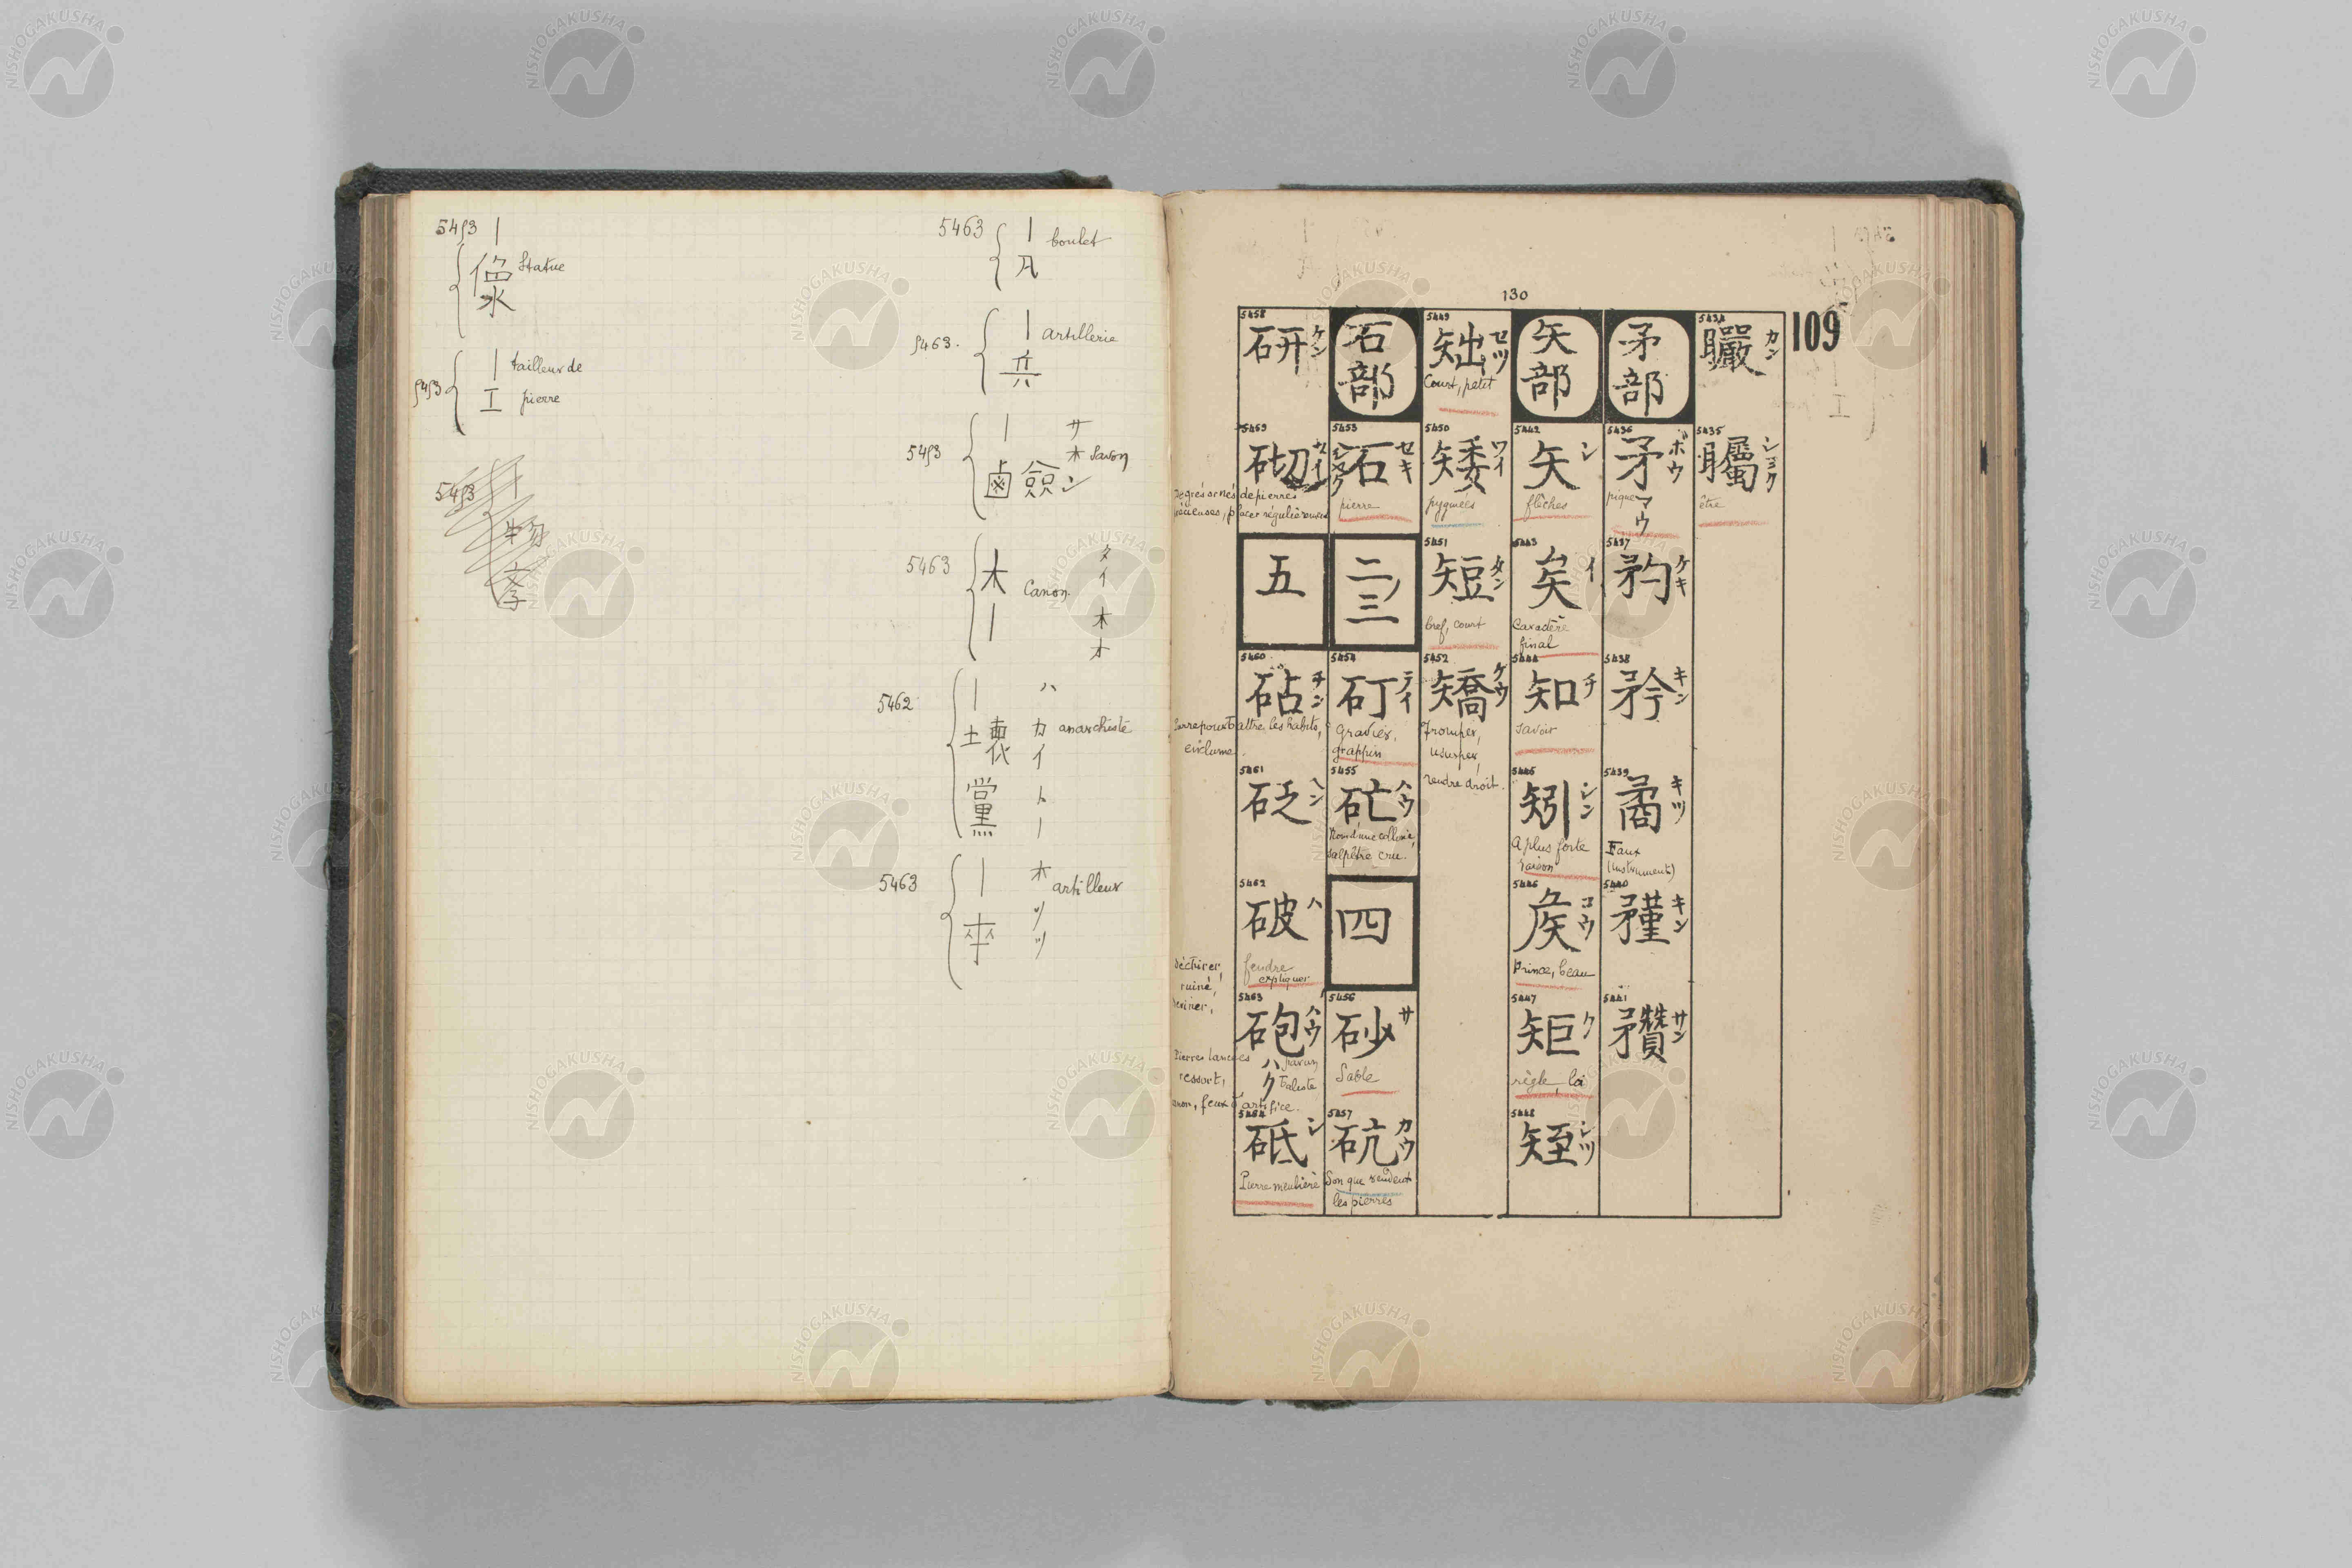 5453 |
像 Statue
水
5453 | tailleur de
工 pierre
5453 |
5463 | boulet
5463. | artillerie
兵
5453 | サ
鹵僉 ホ Savon
ン
5463 大 Canon
| タイホオ
5462 | ハ
カ anarchiste
イ
黨 ト
ー
5463 | ホ artilleur
卒 ツ
ツ
130
109
5434
矙 カン
5435
矚 ショク
être
矛部
5436
矛 ボウ
pique マウ
5437
矜 ケキ
5438
矜 キン
5439
矞 キツ
Faux
(instrument)
5440
矡 キン
5441
矝 サン
矢部
5442
矢 シ
flèches
5443
矣 イ
Caractère
final
5444
知 チ
savoir
5445
矧 シン
A plus forte
raison
5446
矦 コウ
Prince, beau
5447
矩 ク
règle, loi
5448
矬 シツ
5449
矬 セツ
Court, petit
5450
矮 ワイ
pygmées
5451
短 タン
bref, court
5452
矯 ケウ
Tromper,
usurper,
rendre droit.
石部
5453
石 セキ
シヤク
pierre
二,三
5454
矴 テイ
Gravier,
grappin
5455
硭 ハウ
Nom d'une colline,
salpêtre cru.
四
5456
砂 サ
Sable
5457
砊 カウ
Son que rendent
les pierres
5458
研 ケン
5459
砌 セイ
Degrés ornés de pierres
précieuses, placer régulièrement
五
5460
砧 チン
Barre pour battre les habits,
enclume.
5461
砭 ヘン
5462
破 ハ
fendre
expliquer
Déchirer,
ruiné,
5463
砲 ハウ
ハク
baliste
Pierres lancées
ressort,
canon, feux d'artifice.
5464
砥 シ
Pierre meulière